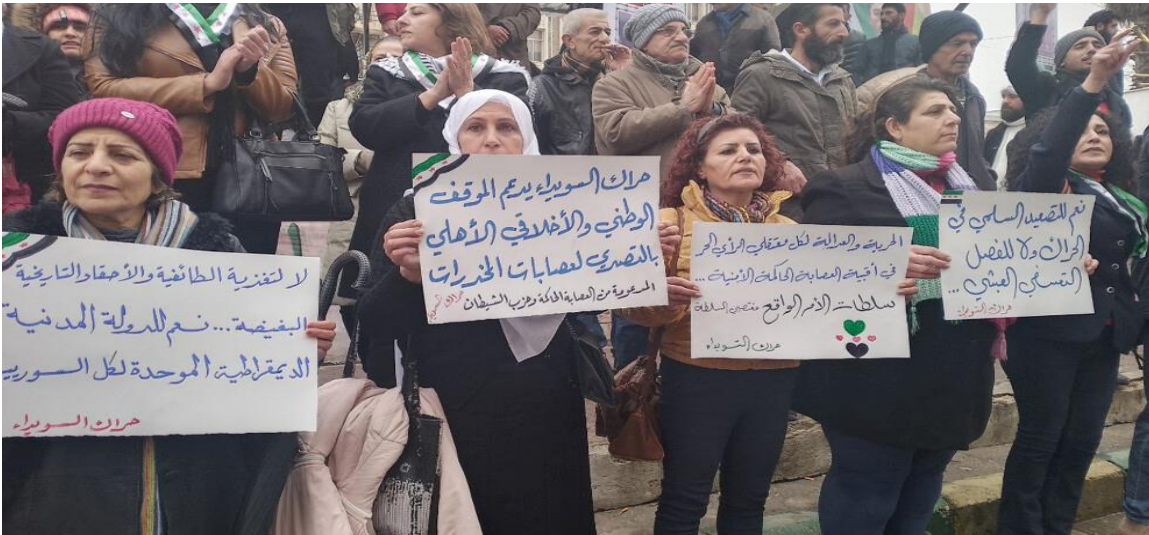 لا لتغذية الطائفية والأحقاد التاريخية
البغيضة... نعم للدولة المدنية
الديمقراطية الموحدة لكل السوريي
حراك السويداء
حراك السويداء يدعم الموقف
الوطني والأخلاقي الأهلي
بالتصدي لعصابات المخدرات
المدعومة من العصابة الحاكمة وحزب الشيطان
الحرية والعدالة لكل معتقلي الرأي الحر
في أقبية العصابة الحاكمة الأمنية...
سلطات الأمر الواقع مغتصبي السلطة
حراك السويداء
نعم للتصعيد السلمي في
الحراك ولا للفصل
التعسفي العبثي...
حراك السويداء